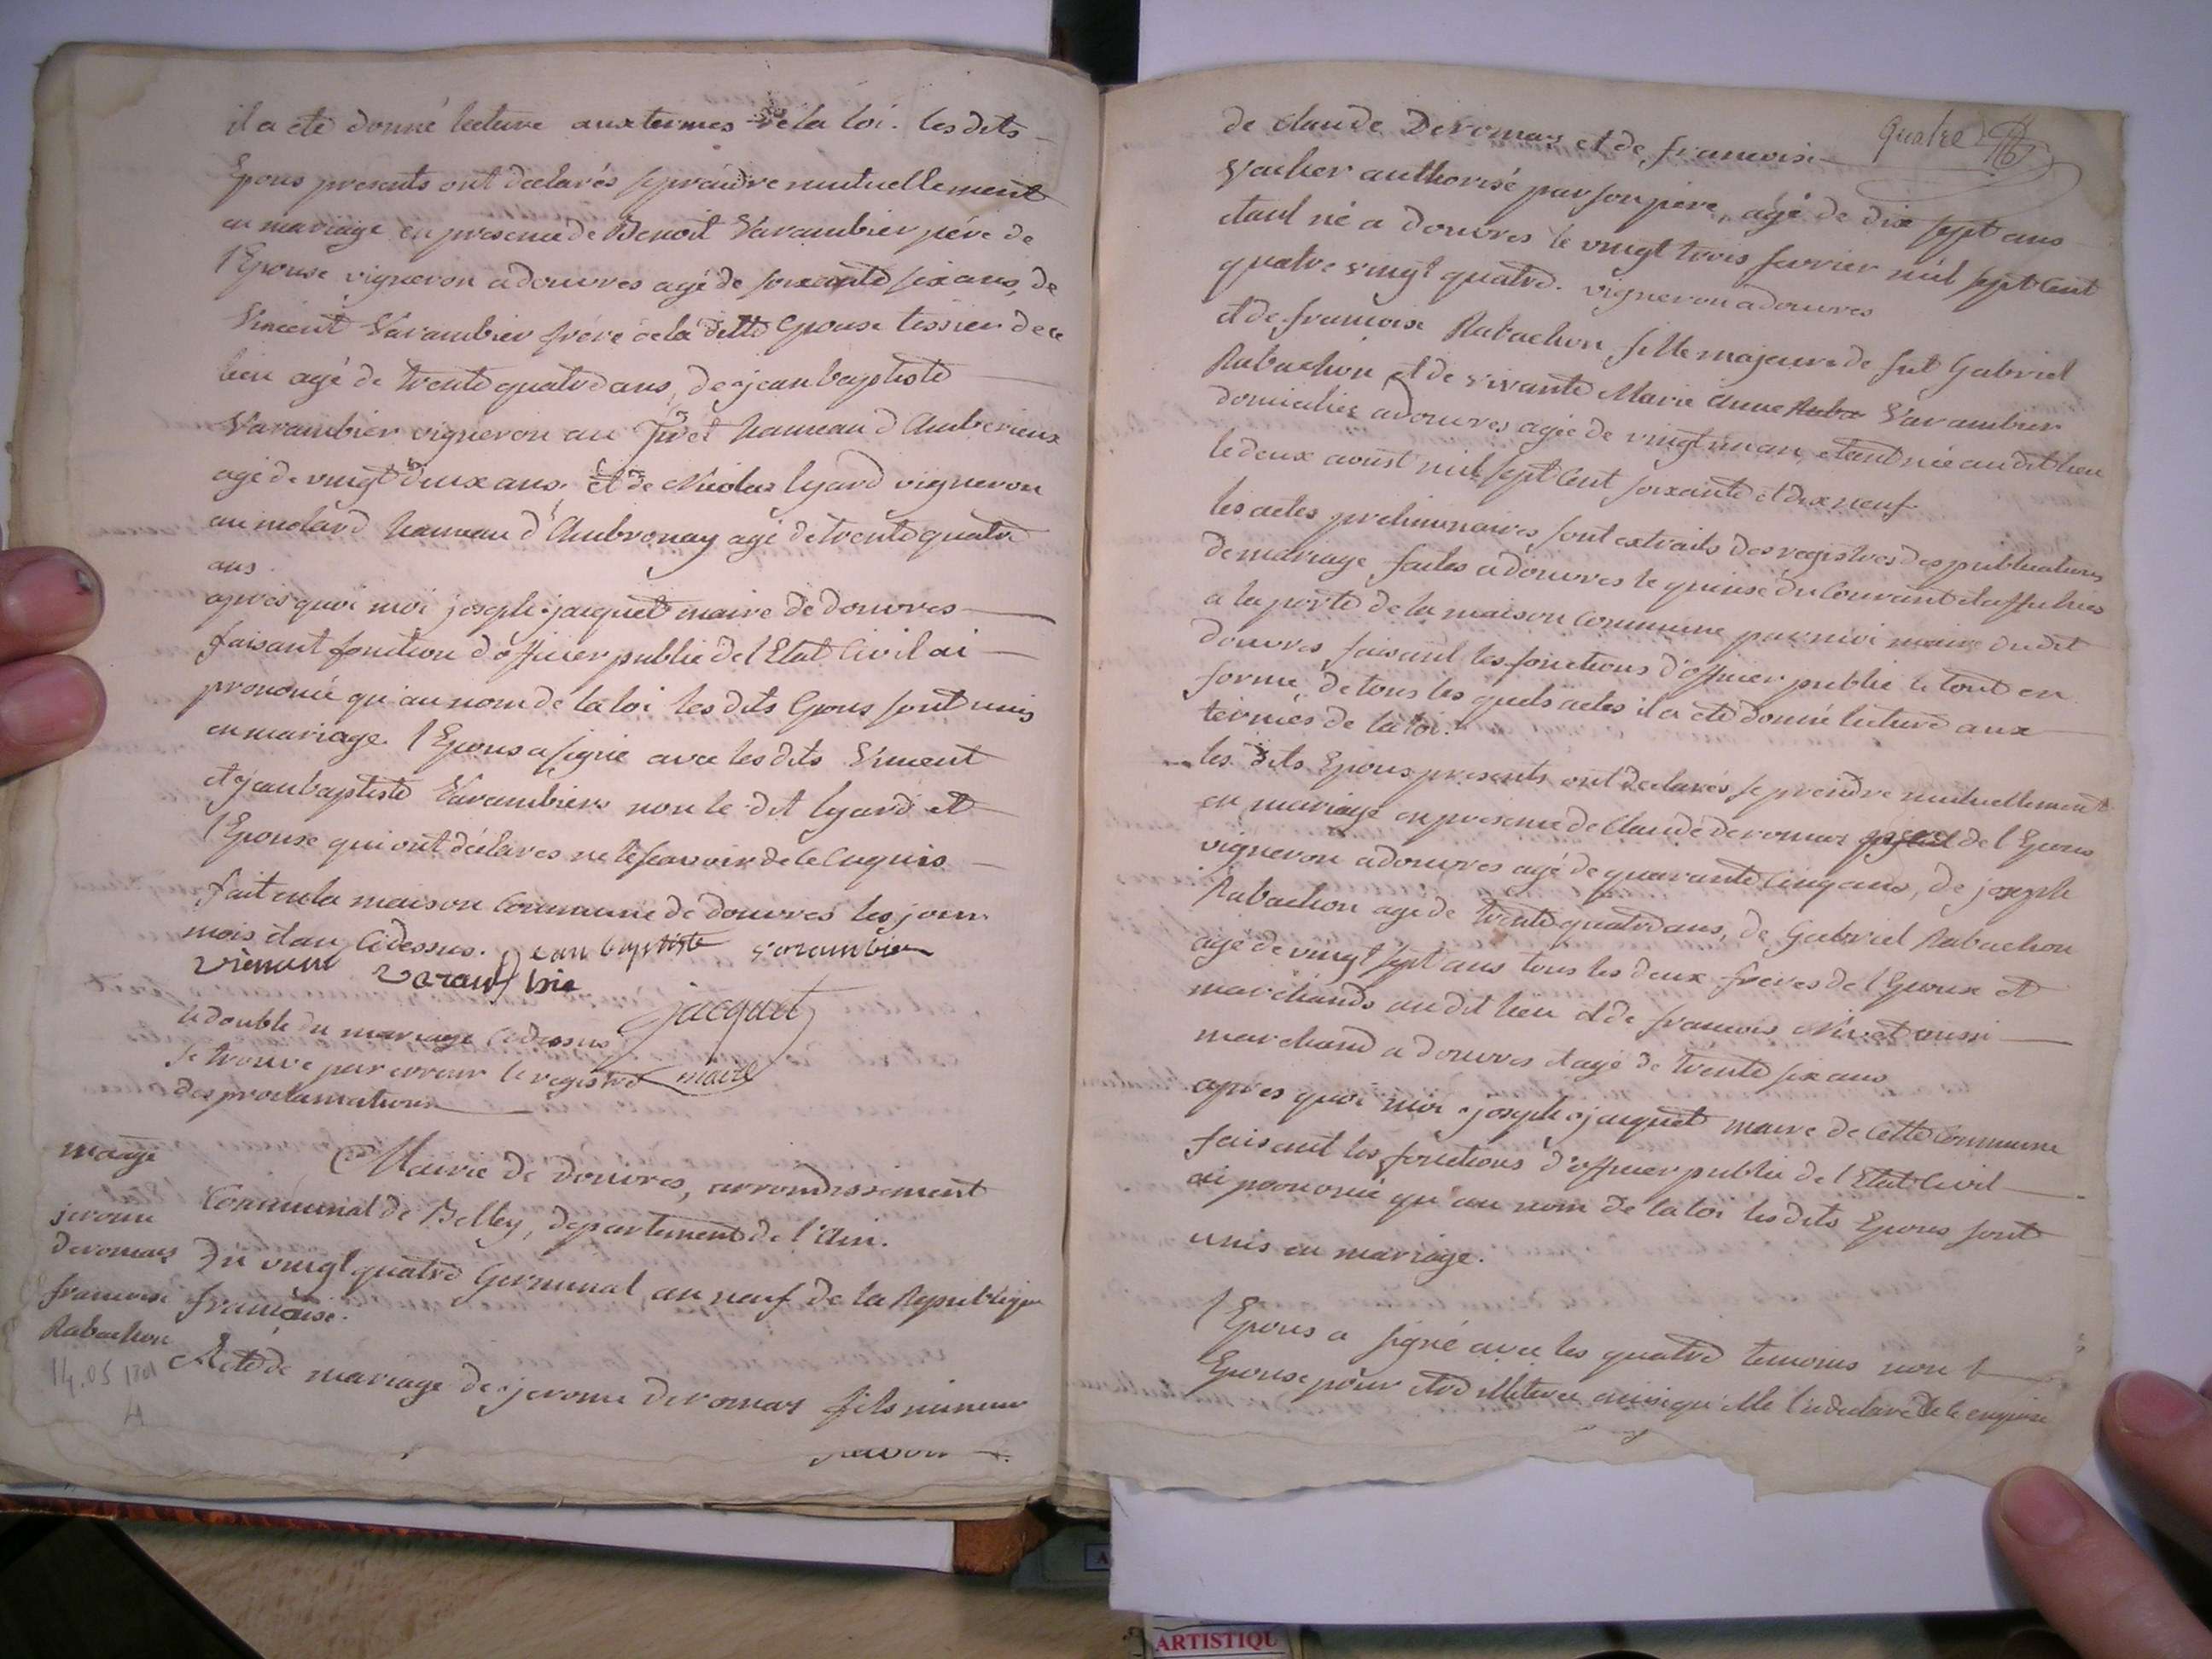 il a eté donné lecture aux termes de la loi. les dits
Epous presents ont declarés se prendre mutuellement
en mariage en presence de Benoit Varambier pére de
l'Epouse vigneron a douvres agé de soixante six ans, de
Vincent Varambier frére de la ditte Epouse tessier de ce
lieu agé de trente quatre ans, de jean baptiste
Varambier vigneron au hameau d'Amberieux
agé de vingt deux ans, et de Nicolas lyard vigneron
au molard hameau d'Ambronay agé de trente quatre
ans.
apres quoi moi joseph jacquet maire de douvres
faisant fonction d'officier public de l'Etat Civil ai
prononcé qu'au nom de la loi les dits Epous sont unis
en mariage. l'Epous a signé avec les dits Vincent
et jean baptiste Varambiers non le dit lyard et
l'Epouse qui ont déclarés ne le scavoir de ce enquis
fait en la maison Commune de douvres les jour
mois et an Cidessus. jean baptiste varambier
varambie
jacquet
le double du mariage Cidessus
se trouve par erreur le registre maire
des proclamations
mariage
Mairie de douvres, arrondissement
Communal de Belley, departement de l'Ain.
jerome
deromas Du vingt quatre Germinal an neuf de la Republique
francoise francaise.
Rabachon
14.05 1801 Acte de mariage de jerome deromas fils mineur
quatre
de claude Deromas et de francoise
Vacher authorisé par son pere, agé de dix sept ans
etant né a douvres le vingt trois fevrier mil sept Cent
quatre vingt quatre. vigneron a douvres
et de francoise Rabachon, fille majeure de fut Gabriel
Rabachon et de vivante Marie anne Varambier
domicilier a douvres agée de vingt un an, etant née au dit lieu
le deux aoust mil sept Cent soixante et dix neuf
les actes preliminaires sont extraits des registres des publications
de mariage, faites a douvres le quinse du Courant et affichées
a la porte de la maison Commune par moi maire du dit
douvres, faisant les fonctions d'officier public le tout en
forme, de tous les quels actes il a eté donné lecture aux
termes de la loi.
les dits Epous presents ont declarés se prendre mutuellement
en mariage en presence de Claude deromas de l'Epous
vigneron a douvres agé de quarante Cinq ans, de joseph
Rabachon agé de trente quatre ans, de Gabriel Rabachon
agé de vingt sept ans tous les deux fréres de l'Epouse et
marchands au dit lieu et de francois Nivet aussi
marchand a douvres et agé de trente six ans
apres quoi moi joseph jacquet maire de Cette Commune
faisant les fonctions d'officier public de l'Etat Civil
ai prononcé qu'au nom de la loi les dits Epous sont
unis en mariage.
l'Epous a signé avec les quatre temoins non l
Epouse pour etre illiterée ainsi qu'elle l'a declaré de ce enquise
ARTISTIQU